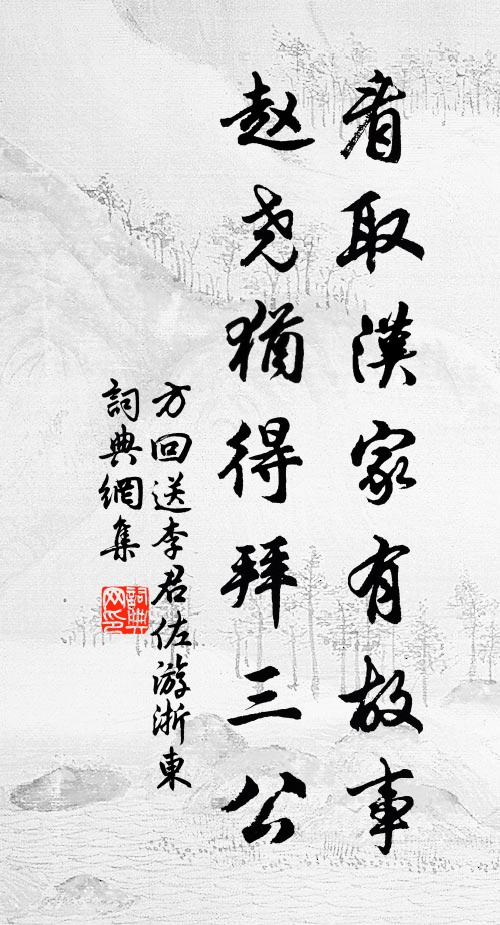 看取漢家有故事
赵尧猶得拜三公
方回送李君佐游浙東
詞典網集
詞典
网印